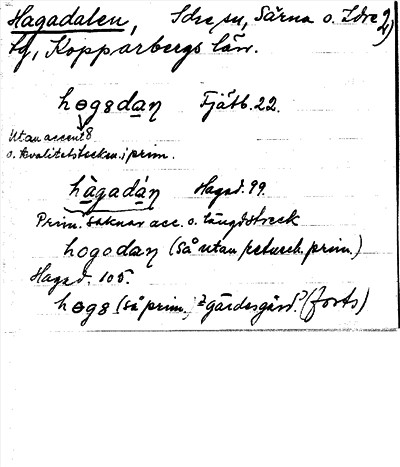 Hagadalen, Idre sn, Särna o. Idre 2)
tg, Kopparbergs län.
hɵgɞdaɳ Fjätb. 22.
Utan accent
o. kvalitetstecken i prim.
hàgadáɳ Hagad. 99.
Prim. saknar acc. o. längdstreck
hogodaɳ (så utan peturch. prim.)
Hagad. 105.
hɵgɞ (så prim.) "gärdesgård"? (forts)